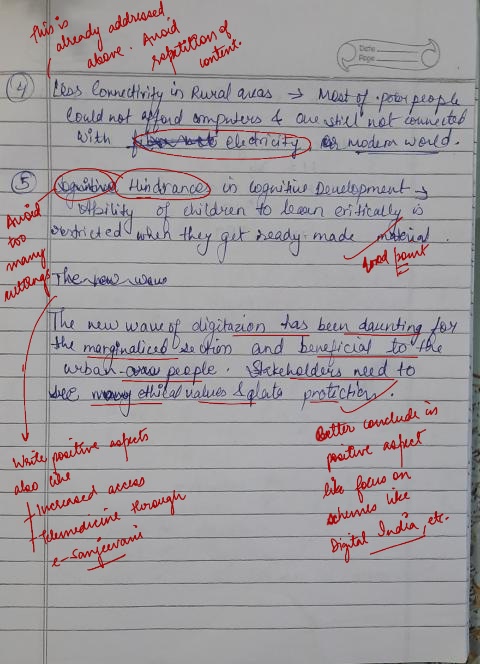 This is
already addressed
above. Avoid
repetition of
content.
Date
Page
④ Less Connectivity in Rural areas → Most of poor people
could not afford computers & are still not connected
with electricity or modern world.
⑤ Cognitive Hindrances in Cognitive Development →
Ability of children to learn critically is
restricted when they get ready made material.
Good point
Avoid
too
many
cuttings
The new wave
The new wave of digitazion has been daunting for
the marginalised section and beneficial to the
urban people. Stakeholders need to
see many ethical values & data protection.
Write positive aspects
also like
→ Increased access
→ Telemedicine through
e-Sanjeevani
Better conclude in
positive aspect
like focus on
schemes like
Digital India, etc.